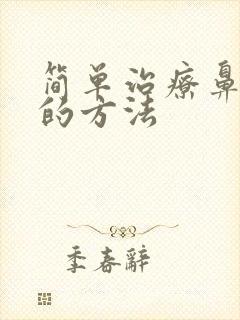 简单治疗鼻
的方法
季春辞